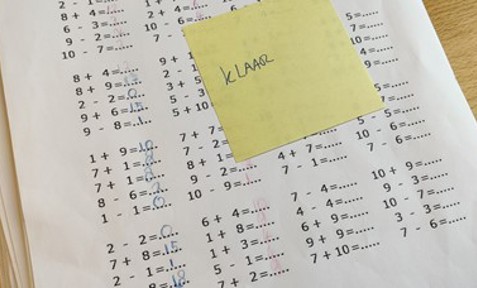 2 - 1=.....
8 + 4=.....
6 - 3=.....
9 - 2=.....
10 - 7=.....
8 + 4=.....
8 + 9=.....
2 - 2=0
9 + 6=15
9 - 8=1
1 + 9=10
7 + 1=8
7 + 1=8
8 - 6=2
1 - 1=0
2 - 2=0
7 + 8=15
2 - 1=1
8=18
2 + 4=.....
10 - 6=.....
7 -
9 + 1
2 - 1
3 + 5
5 - 3
5 + 10
7 + 7=
7 - 2=
8 + 1=
9 - 2=.....
10 - 9=.....
6 + 4=.....
1 + 8=.....
1 + 3=.....
5 - 1=.....
7 + 2=.....
KLAAR
4 + 7=.....
7 - 1=.....
7 - 4=.....
4 - 4=.....
6 + 9=.....
9 + 9=.....
7 + 10=.....
5=.....
7=.....
4=.....
9=.....
5=.....
7=.....
5 - 5=.....
10 - 6=.....
7 - 6=.....
10 + 9=.....
9 - 3=.....
10 - 7=.....
3 - 3=.....
7 - 6=.....